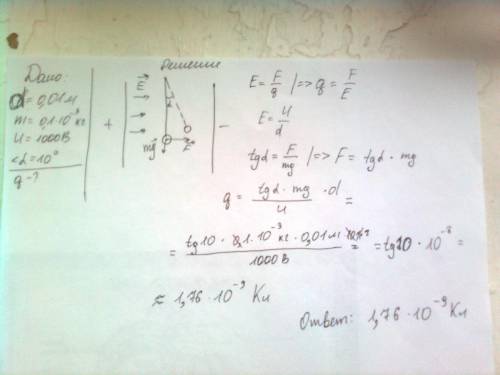 Дано:
d = 0,01 м
m = 0,1·10⁻³ кг
U = 1000 В
<α = 10°
q - ?
Решение
+ E⃗ α −
mg⃗ F⃗
E = F/q |=> q = F/E
E = U/d
tgα = F/mg |=> F = tgα · mg
q = tgα · mg/U · d =
= tg10 · 0,1·10⁻³ кг · 0,01 м/1000 В = = tg10 · 10⁻⁸ =
≈ 1,76 · 10⁻⁹ Кл
Ответ: 1,76 · 10⁻⁹ Кл